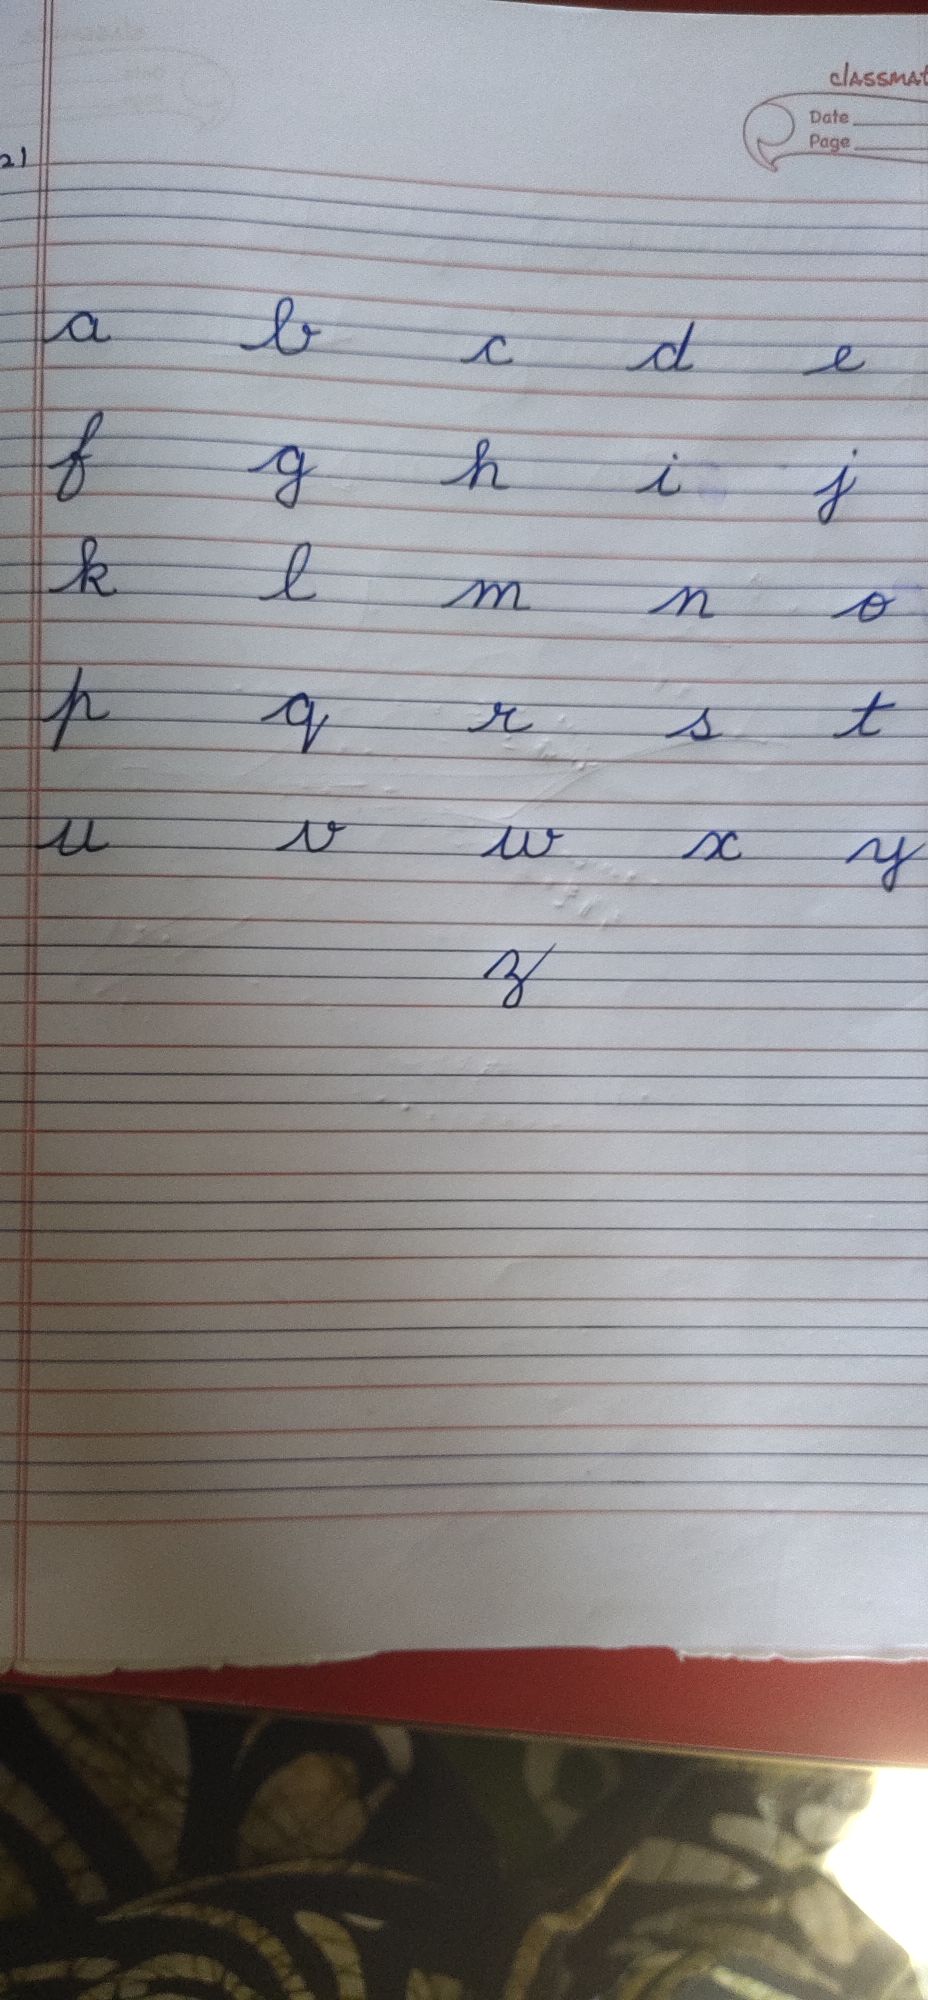 classmat
Date
Page
21
a b c d e
f g h i j
k l m n o
p q r s t
u v w x y
z